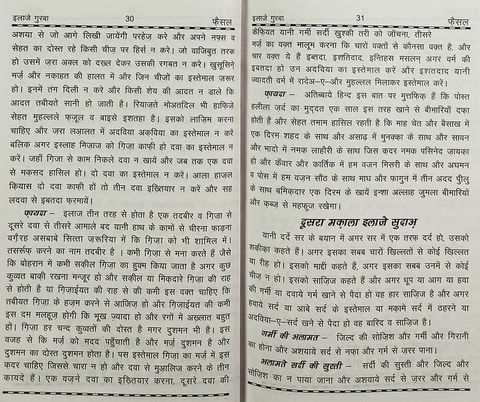 इलाजे गुरबा 30 फ़ैसल
अशया से जो आगे लिखी जायेंगी परहेज़ करे और अपने नफ्स व
सेहत का दोस्त रहे किसी चीज़ पर हिर्स न करे। जो वाजिबुत तरफ
हो उसमें जरा अक्ल को दखल देकर उसकी रगबत न करे। खुसूसिन्
मर्ज और नकाहत की हालत में और जिन चीजों का इस्तेमाल जरूर
हो। इनमें तंग दिली न करे और किसी शेय की आदत न डाले कि
आदत तबीयते सानी हो जाती है। रियाजते मोअतदिल भी हाफिजे
सेहत मुहल्लले फजूल व बाइसे इशतहा है। इसको लाजिम करना
चाहिए और जरा सी अलालत में अदविया अकविया का इस्तेमाल न करें
बल्कि अगर इस्लाह मिजाज को गिजा काफी हो दवा का इस्तेमाल न
करें। जहाँ गिजा से काम निकले दवा न खायें और जब तक एक दवा
से मकसद हासिल हो। दो दवा का इस्तेमाल न करें। आला हाजल
कियास दो दवा काफी हों तो तीन दवा इख़्तियार न करें और सह
लदवा से इबतदा फरमायें।
फ़ायदा – इलाज तीन तरह से होता है एक तदबीर व गिजा से
दूसरे दवा से तीसरे आमाले बद यानी हाथ के कामों से चीरना फाड़ना
वगैरह असबाबे सित्ता जरूरिया में कि गिजा को भी शामिल में।
तसर्रुफ करने का नाम तदबीर है। कभी गिजा से मना करते हैं जैसे
कि बोहरान में कभी सकील गिजा का हुक्म किया जाता है अगर कुछ
कुव्वत बाकी रखना मन्जूर हो और सकील या मिकदारे गिजा की राह
से होती है या गिजाईयत की राह से की कमी इस वक्त चाहिए कि
तबीयत गिजा के हज़म करने से आजिज हो और गिजाईयत की कमी
इस दम मलहूज होगी कि भूख ज्यादा हो और रगों में अख्लात बहुत
हों। गिजा हर चन्द कुव्वतों की दोस्त है मगर दुशमन भी है। इस
वजह से कि मर्ज को मदद पहुँचाती है और मर्ज दुशमन है और
दुशमन का दोस्त दुशमन होता है। पस इस्तेमाल गिजा का मर्ज में इस
कदर चाहिए जिससे चारा न हो और दवा से मुआलिज करने के तीन
कायदे हैं। एक वज़ने दवा का इख्तियार करना, दूसरे दवा की
इलाजे गुरबा 31 फ़ैसल
कैफियत यानी गर्मी सर्दी खुश्की तरी को जाँचना, तीसरे
मर्ज का वक्त मालूम करना कि चारों वक्तों से कौनसा वक्त है, और
चार वक्त ये हैं इबतदा, इशतदाद, इन्तिहा मसलन् अगर वर्म की
इबतदा हो उन अदविया का इस्तेमाल करें और इशतदाद यानी
ज्यादती वर्म में रादेअ-ए-और मुहल्लल मिलाकर इस्तेमाल करें।
फायदा – अतिब्बाये हिन्द इस बात पर मुत्तफिक हैं कि पोस्त
हलीला जर्द का मुद्दत एक साल इस तरह खाने से बीमारियाँ दफा
होती हैं और सेहत तमाम हासिल रहती है कि माह चेत और बैसाख में
एक दिरम शहद के साथ और असाढ़ में मुनक्का के साथ और सावन
और भादों में नमक लाहौरी के साथ जिस कदर नमक पसिनेद जायका
हो और कँवार और कार्तिक में हम वजन मिसरी के साथ और अघमन
व पोस में हम वजन सोंठ के साथ माघ और फागुन में तीन अदद पीलू
के साथ बमिकदार एक दिरम के खायें इन्शा अल्लाह जुमला बीमारियों
और कब्ज से महफूज रखेगा।
दूसरा मक़ाला इलाजे सुदाअ़
यानी दर्द सर के बयान में अगर सर में एक तरफ दर्द हो, उसको
शकीका कहते हैं। अगर इसका सबब चारों खिलतों से कोई खिलत
या रीह हो। इसको माद्दी कहते हैं, अगर इसका सबब उनमें से कोई
चीज न हो। इसको साजिज कहते हैं और अगर धूप या आग या हवा
की गर्मी या दवाये गर्म खाने से पैदा हो वह हार साजिज है और अगर
हवाये सर्द या आबे सर्द के इस्तेमाल या मकामे सर्द में ठहरने या
अदविया-ए-सर्द खाने से पैदा हो वह बारिद व साजिज है।
गर्मी की अलामत – जिल्द की सोजिश और गर्मी और गिरानी
का होना और अशयाये सर्द से नफा और गर्म से जरर पाना।
अलामते सर्दी की सुस्ती – सर्दी की सुस्ती और जिल्द और
सोजिश का न पाया जाना और अशयाये सर्द से जरर और गर्म से